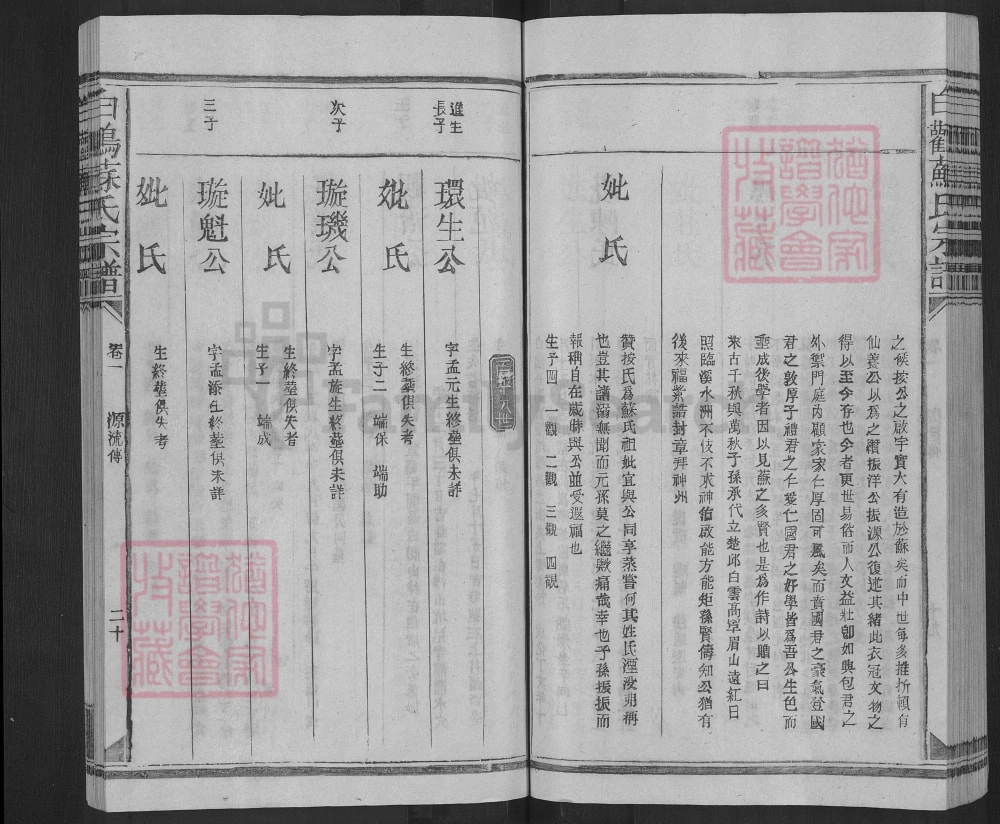 白鶴蘇氏宗譜
之候按公之啟宇實大有造於蘇矣而中世每多挫折頓有
仙養公以爲之瓚振洋公振源公復述其緒此衣冠文物之
得以至今存也今者更世易俗而人文益壯卽如興包君之
外禦門庭內顧家家仁厚固可風矣而賁國君之豪氣登國
君之敦厚子禮君之仁愛仁國君之好學皆爲吾公生色而
垂成後學者因以見蘇之多賢也是爲作詩以贈之曰
來古千秋與萬秋子孫承代立楚邱白雲高罩眉山遠紅日
照臨溪水洲不伎不求神佑啟能方能矩孫賢儔知公猶有
後來福紫誥封章拜神州
妣氏
贊按氏爲蘇氏祖妣宜與公同享蒸嘗何其姓氏湮沒弗稱
也豈其譜濔無聞而元孫莫之繼歟痛哉幸也子孫振振而
報稱自在歲時與公並受遐福也
生子四 一觀 二觀 三觀 四觀
進生長子
環生公
字孟元生終塟俱未詳
妣氏
生終塟俱失考
生子二 端保 端助
次子
璇璣公
字孟旋生終塟俱未詳
妣氏
生終塟俱失考
生子一 端成
三子
璇魁公
字孟添生終塟俱未詳
妣氏
生終塟俱失考
白鶴蘇氏宗譜
卷一
源流傳
二十
猶他家譜學會持藏
猶他家譜學會持藏
FamilySearch